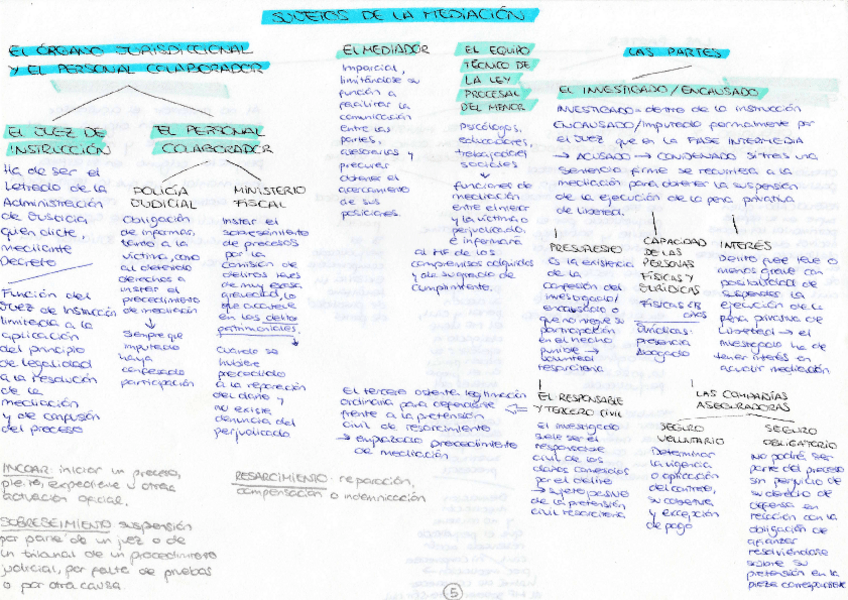 SUJETOS DE LA MEDIACIÓN
EL ÓRGANO JURISDICCIONAL
Y EL PERSONAL COLABORADOR
EL JUEZ DE
INSTRUCCIÓN
Ha de ser el
Letrado de la
Administración
de Justicia
quien dicte,
mediante
Decreto
Función del
Juez de Instrucción
limitada a la
aplicación
del principio
de legalidad
a la resolución
de la
mediación
y de conclusión
del proceso
EL PERSONAL
COLABORADOR
POLICÍA
JUDICIAL
Obligación
de informar,
tanto a la
víctima, como
al detenido
derechos a
instar el
procedimiento
de mediación
↓
Siempre que
imputado
haya
confesado
participación
MINISTERIO
FISCAL
Instar el
sobreseimiento
de procesos
por la
comisión de
delitos leves
de muy escasa
gravedad, lo
que acontece
en los delitos
patrimoniales.
cuando se
hubiere
procedido
a la reparación
del daño y
no exista
denuncia del
perjudicado
EL MEDIADOR
Imparcial,
limitándose su
función a
facilitar la
comunicación
entre las
partes,
asesorarlas y
procurar
obtener el
acercamiento
de sus
posiciones.
EL EQUIPO
TÉCNICO DE
LA LEY
PROCESAL
DEL MENOR
Psicólogos,
educadores,
trabajadores
sociales
↓
funciones de
mediación
entre el menor
y la víctima o
perjudicado.
e informará
al MF de los
compromisos adquiridos
y de su grado de
cumplimiento.
LAS PARTES
EL INVESTIGADO/ENCAUSADO
INVESTIGADO = dentro de la instrucción
ENCAUSADO/Imputado formalmente por
el Juez que en la FASE INTERMEDIA
→ ACUSADO → CONDENADO si tras una
Sentencia firme se recurriera a la
mediación para obtener la suspensión
de la ejecución de la pena privativa
de libertad.
PRESUPUESTO
Es la existencia
de la
confesión del
investigado/
encausado o
que no niegue su
participación
en el hecho
punible →
voluntad
resarcitoria
CAPACIDAD
DE LAS
PERSONAS
FÍSICAS Y
JURÍDICAS
FÍSICAS
Jurídicas:
presencia
Abogado
INTERÉS
Delito fuere leve o
menos grave con
posibilidad de
suspender la
ejecución de la
pena privativa de
libertad → el
investigado ha de
tener interés en
acudir mediación
EL RESPONSABLE
Y TERCERO CIVIL
El investigado
suele ser el
responsable
civil de los
daños cometidos
por el delito
→ sujeto pasivo
de la pretensión
civil resarcitoria
El tercero ostente legitimación
ordinaria para defenderse
frente a la pretensión
civil de resarcimiento
→ emplazado procedimiento
de mediación
LAS COMPAÑÍAS
ASEGURADORAS
SEGURO
VOLUNTARIO
Determinar
la vigencia
o aplicación
del contrato,
su cobertura
y excepción
de pago
SEGURO
OBLIGATORIO
No podrá ser
parte del proceso
sin perjuicio de
su derecho de
defensa en
relación con la
obligación de
afianzar
resolviéndose
sobre su
pretensión en la
pieza correspondiente
INCOAR: iniciar un proceso,
pleito, expediente u otras
actuación oficial.
SOBRESEIMIENTO: suspensión
por parte de un juez o de
un tribunal de un procedimiento
judicial, por falta de pruebas
o por otra causa.
RESARCIMIENTO: reparación,
compensación o indemnización
5